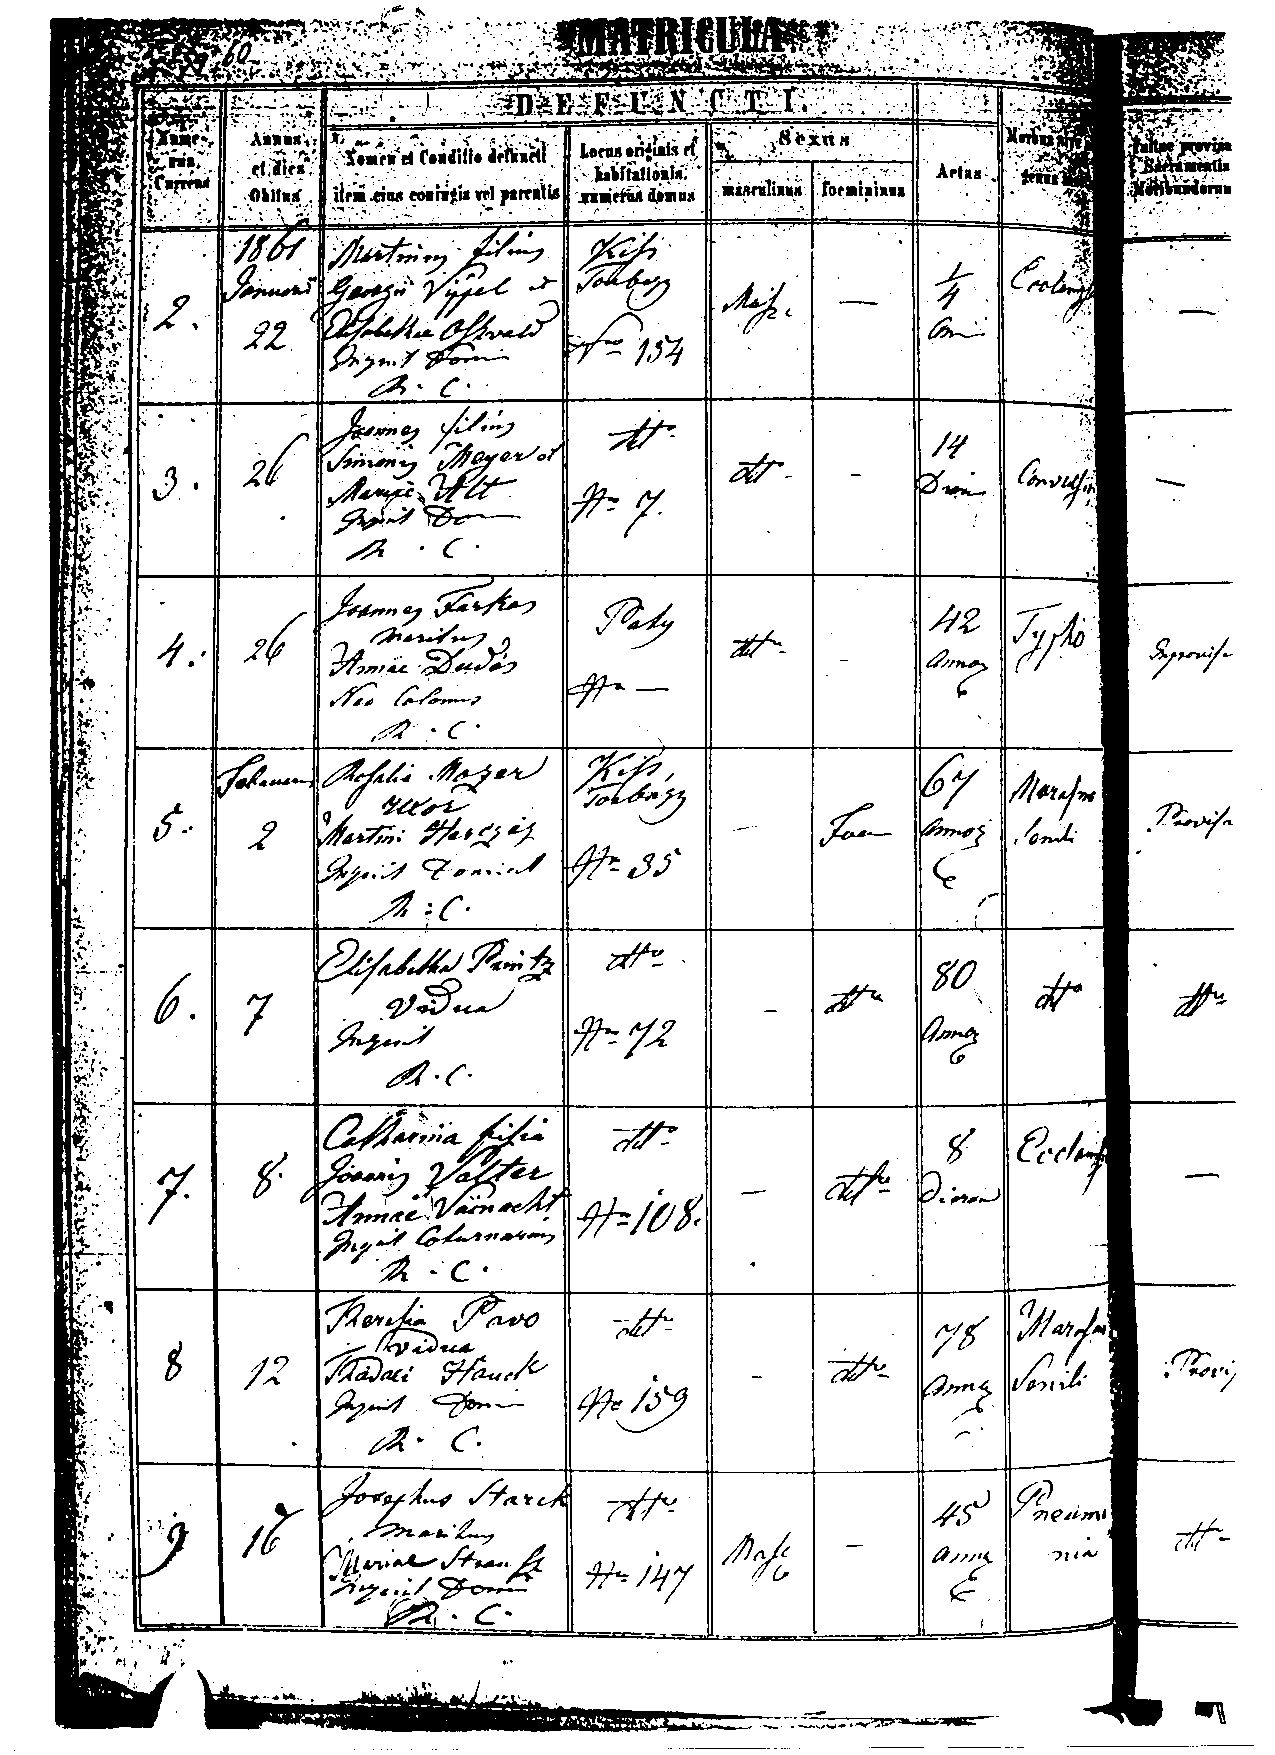 60
MATRICULA
DEFUNCTI.
Nume-
rus
Currens
Annus
et dies
Obitus
Nomen et Conditio defuncti
item ejus conjugis vel parentis
Locus originis et
habitationis,
numerus domus
Sexus
masculinus
foemininus
Aetas
Morbus
genus
provis
Sacramentis
Moribundorum
2.
1861
Januarii
22
Martinus filius
Georgii Vippel et
Elisabethae Oswald
Inquil Dom
R. C.
Kiss
Torbagy
Nro 154
Masc
—
1/4
Anni
3.
26
Joannes filius
Simonis Mayer et
Mariae Alt
Inquil Dom
R. C.
dtto
Nro 7.
dtto
-
14
Dier
Convulsio
—
4.
26
Joannes Farkas
maritus
Annae Dudás
Neo Colonus
R. C.
Paty
Nro —
dtto
-
42
Annor
Typho
Improvis
5.
Februarii
2
Rosalia Mozer
uxor
Martini Herczig
Inquil Domicil
R. C.
Kiss
Torbagy
Nro 35
-
Foem
67
Annor
Marasmo
Senili
Provis
6.
7
Elisabetha Printz
Vidua
Inquil
R. C.
dtto
Nro 72
-
dtto
80
Annor
dtto
dtto
7.
8.
Catharina filia
Joannis Valter
Annae
Inquil Coturnarius
R. C.
dtto
Nro 108.
—
dtto
8
Dierum
—
8
12
Theresia Pavo
Vidua
Thadaei Hauck
Inquil Dom
R. C.
dtto
Nro 159
-
dtto
78
Annor
Marasm
Senili
Provis
9
16
Josephus Starck
maritus
Mariae
Inquil Dom
R. C.
dtto
Nro 147
Masc
-
45
Annor
Pneumo
nia
dtto